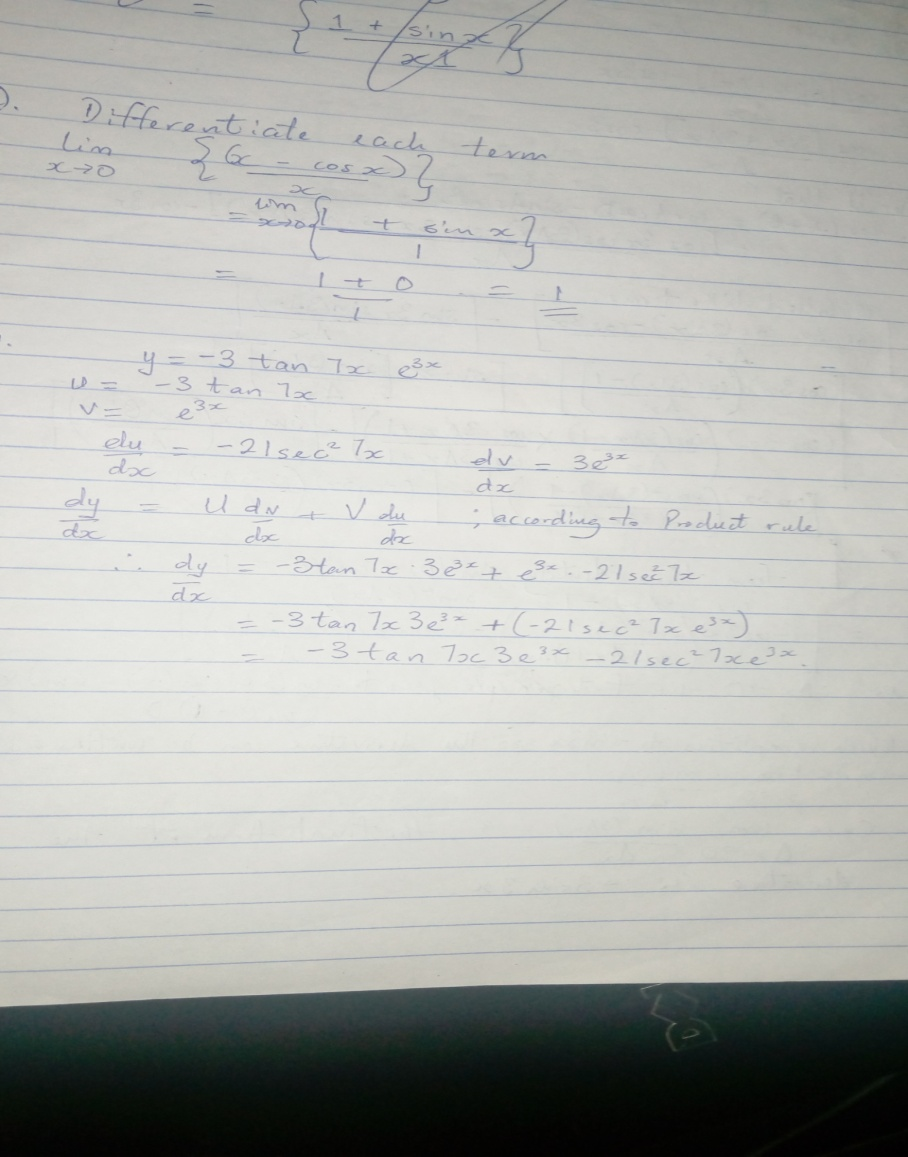 = { 1 + sin x / x 1 }
). Differentiate each term
lim x→0 { (x - cos x) / x }
= lim x→0 { 1 + sin x / 1 }
= 1 + 0 / 1 = 1
. y = -3 tan 7x e^3x
u = -3 tan 7x
v = e^3x
du/dx = -21 sec² 7x dv/dx = 3e^3x
dy/dx = U dv/dx + V du/dx ; according to Product rule
∴ dy/dx = -3tan 7x · 3e^3x + e^3x · -21 sec² 7x
= -3 tan 7x 3e^3x + (-21 sec² 7x e^3x)
= -3 tan 7x 3e^3x - 21 sec² 7x e^3x.